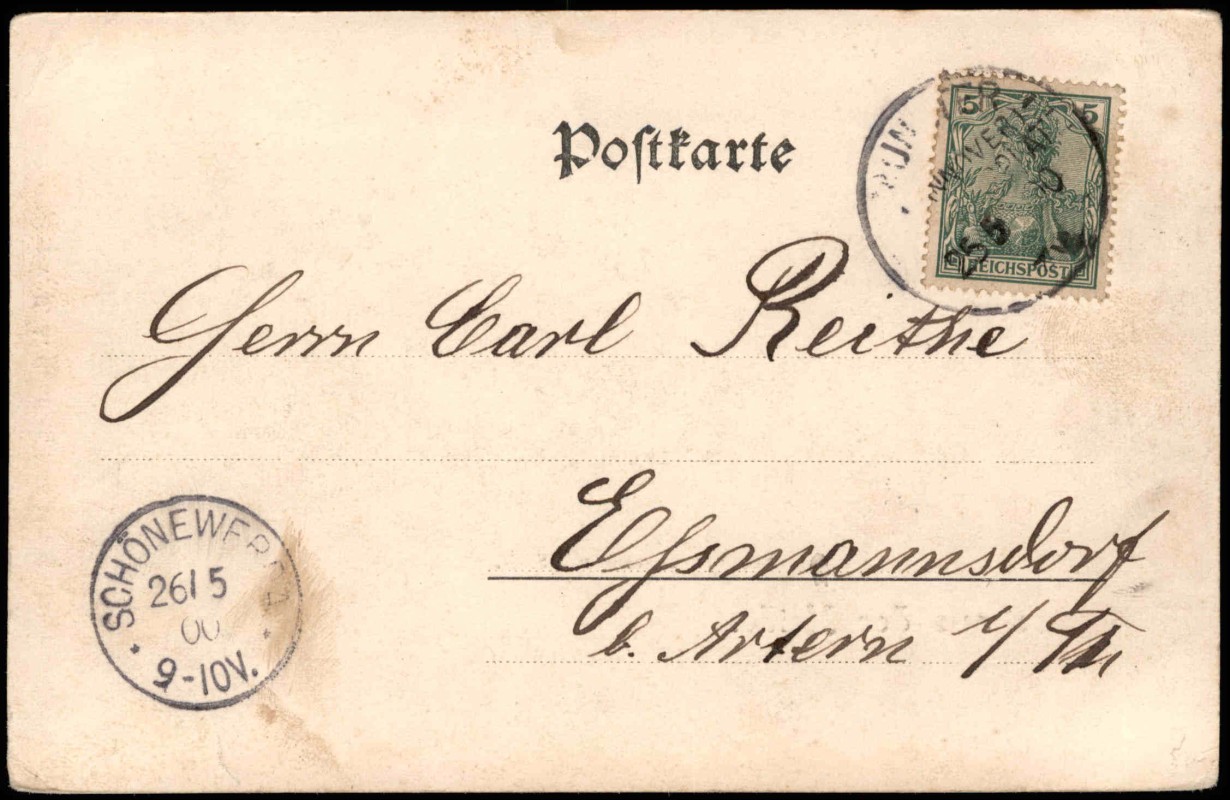 Postkarte
5 5
REICHSPOST
25 5
Herrn Carl Reithe
Eßmannsdorf
b. Artern i/Th
SCHÖNEWERDA
26/5
00
9-10V.